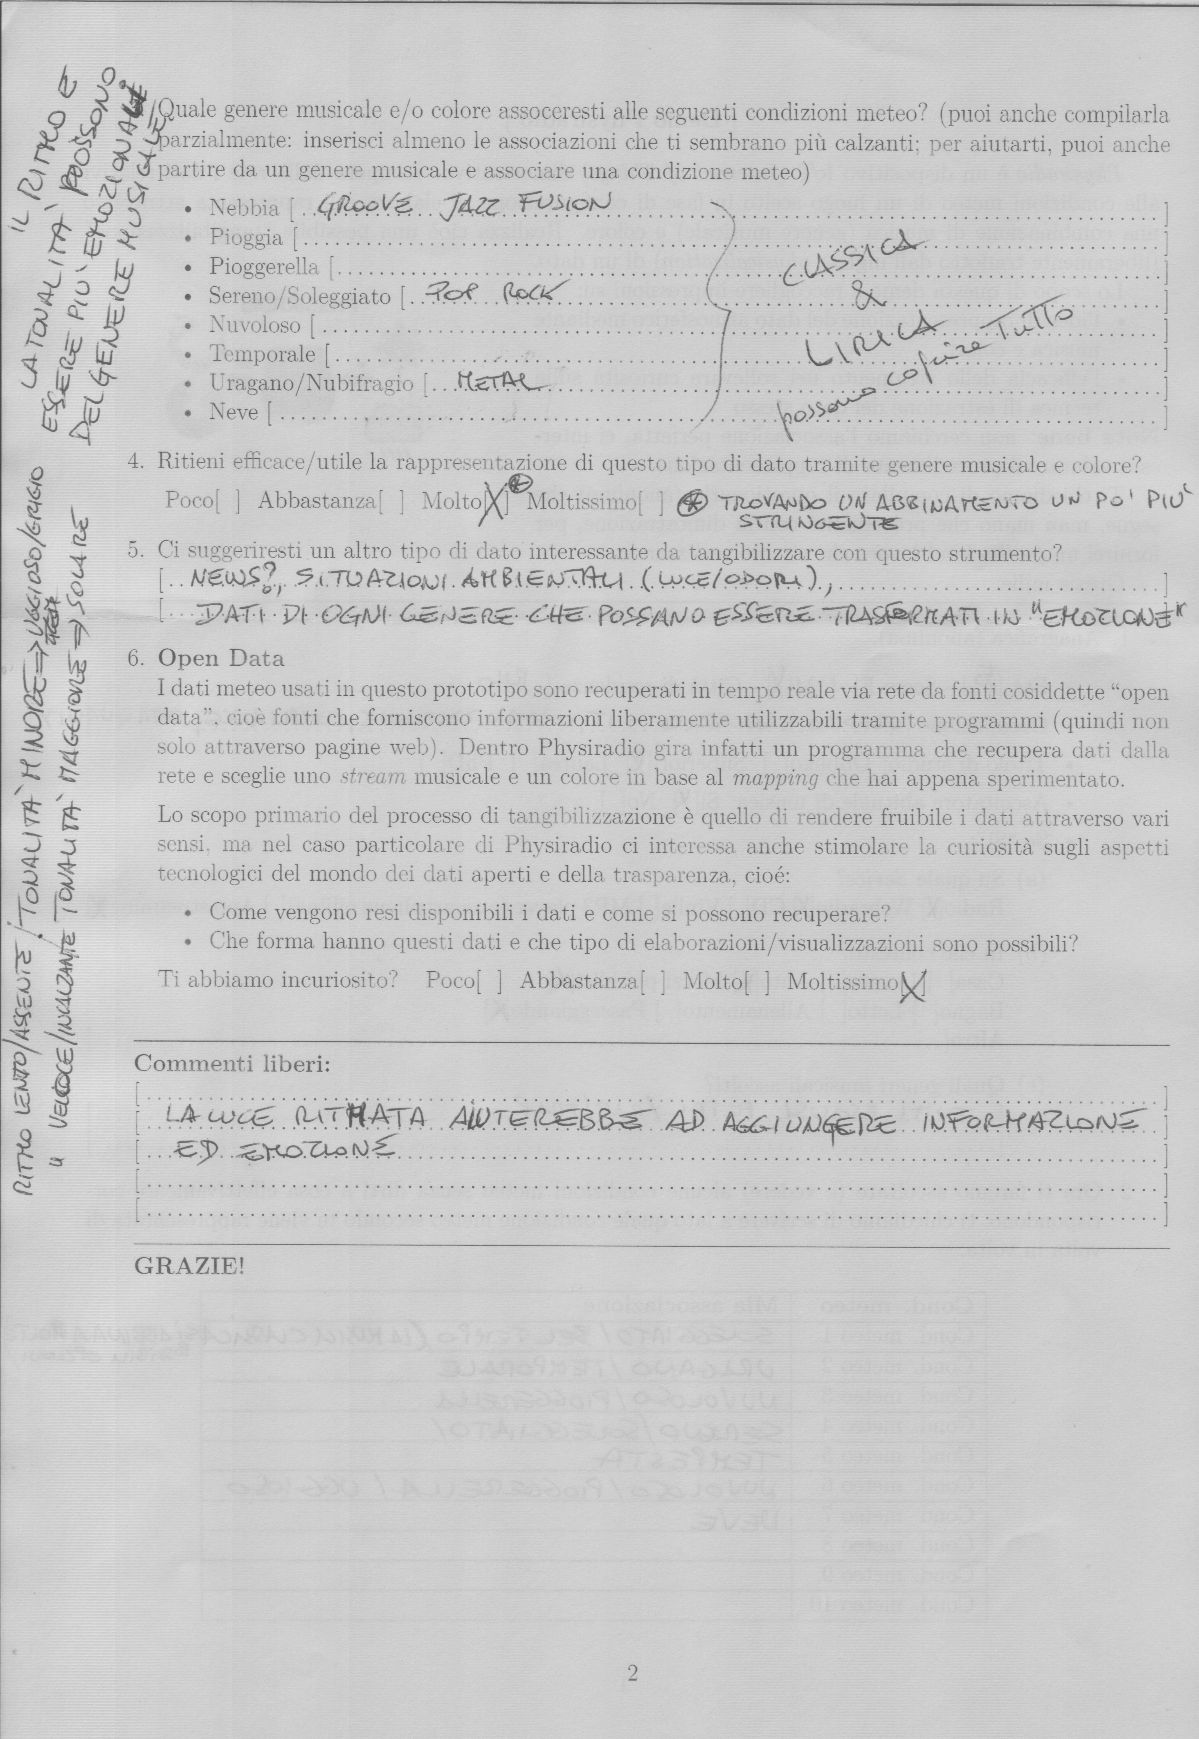 Quale genere musicale e/o colore assoceresti alle seguenti condizioni meteo? (puoi anche compilarla
parzialmente: inserisci almeno le associazioni che ti sembrano più calzanti; per aiutarti, puoi anche
partire da un genere musicale e associare una condizione meteo)
• Nebbia [ GROOVE JAZZ FUSION ]
• Pioggia [ ]
• Pioggerella [ ]
• Sereno/Soleggiato [ POP ROCK ]
• Nuvoloso [ ]
• Temporale [ ]
• Uragano/Nubifragio [ METAL ]
• Neve [ ]
CLASSICA
&
LIRICA
possono coprire TUTTO
IL RITMO E
LA TONALITA' POSSONO
ESSERE PIU' EMOZIONALI
DEL GENERE MUSICALE
RITMO LENTO/ASSENTE / TONALITA' MINORE => UGGIOSO/GRIGIO
" VELOCE/INCALZANTE TONALITA' MAGGIORE => SOLARE
4. Ritieni efficace/utile la rappresentazione di questo tipo di dato tramite genere musicale e colore?
Poco[ ] Abbastanza[ ] Molto[X] * Moltissimo[ ] * TROVANDO UN ABBINAMENTO UN PO' PIU'
STRINGENTE
5. Ci suggeriresti un altro tipo di dato interessante da tangibilizzare con questo strumento?
[ NEWS?, SITUAZIONI AMBIENTALI (LUCE/ODORI), ]
[ DATI DI OGNI GENERE CHE POSSANO ESSERE TRASFORMATI IN "EMOZIONE"
6. Open Data
I dati meteo usati in questo prototipo sono recuperati in tempo reale via rete da fonti cosiddette “open
data”, cioè fonti che forniscono informazioni liberamente utilizzabili tramite programmi (quindi non
solo attraverso pagine web). Dentro Physiradio gira infatti un programma che recupera dati dalla
rete e sceglie uno stream musicale e un colore in base al mapping che hai appena sperimentato.
Lo scopo primario del processo di tangibilizzazione è quello di rendere fruibile i dati attraverso vari
sensi, ma nel caso particolare di Physiradio ci interessa anche stimolare la curiosità sugli aspetti
tecnologici del mondo dei dati aperti e della trasparenza, cioé:
• Come vengono resi disponibili i dati e come si possono recuperare?
• Che forma hanno questi dati e che tipo di elaborazioni/visualizzazioni sono possibili?
Ti abbiamo incuriosito? Poco[ ] Abbastanza[ ] Molto[ ] Moltissimo[X]
Commenti liberi:
[ ]
[ LA LUCE RITMATA AIUTEREBBE AD AGGIUNGERE INFORMAZIONE ]
[ ED EMOZIONE ]
[ ]
[ ]
GRAZIE!
2